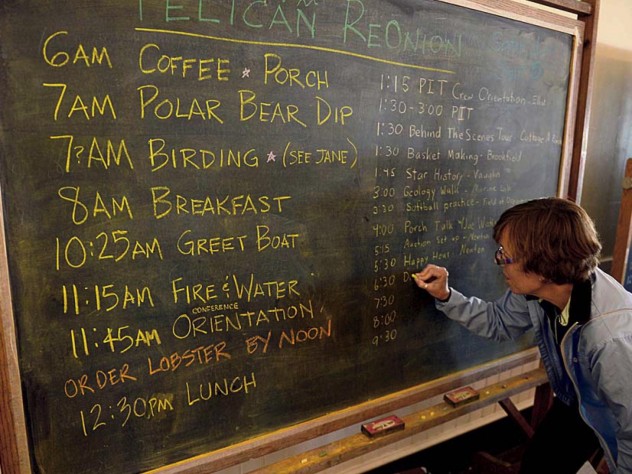 PELICAN REONION
6AM COFFEE * PORCH
7AM POLAR BEAR DIP
7?AM BIRDING * (SEE JANE)
8AM BREAKFAST
10:25AM GREET BOAT
11:15AM FIRE & WATER
11:45AM CONFERENCE ORIENTATION
ORDER LOBSTER BY NOON
12:30PM LUNCH
1:15 PIT Crew Orientation -
1:30-3:00 PIT
1:30 Behind The Scenes Tour
1:30 Basket Making - Brookfield
1:45 Star History - Vaughn
3:00 Geology Walk - Marine Lab
3:30 Softball practice -
4:00 Porch Talk
5:15 Auction set up - Newton
5:30 Happy Hour - Newton
6:30 D
7:30
8:00
9:30